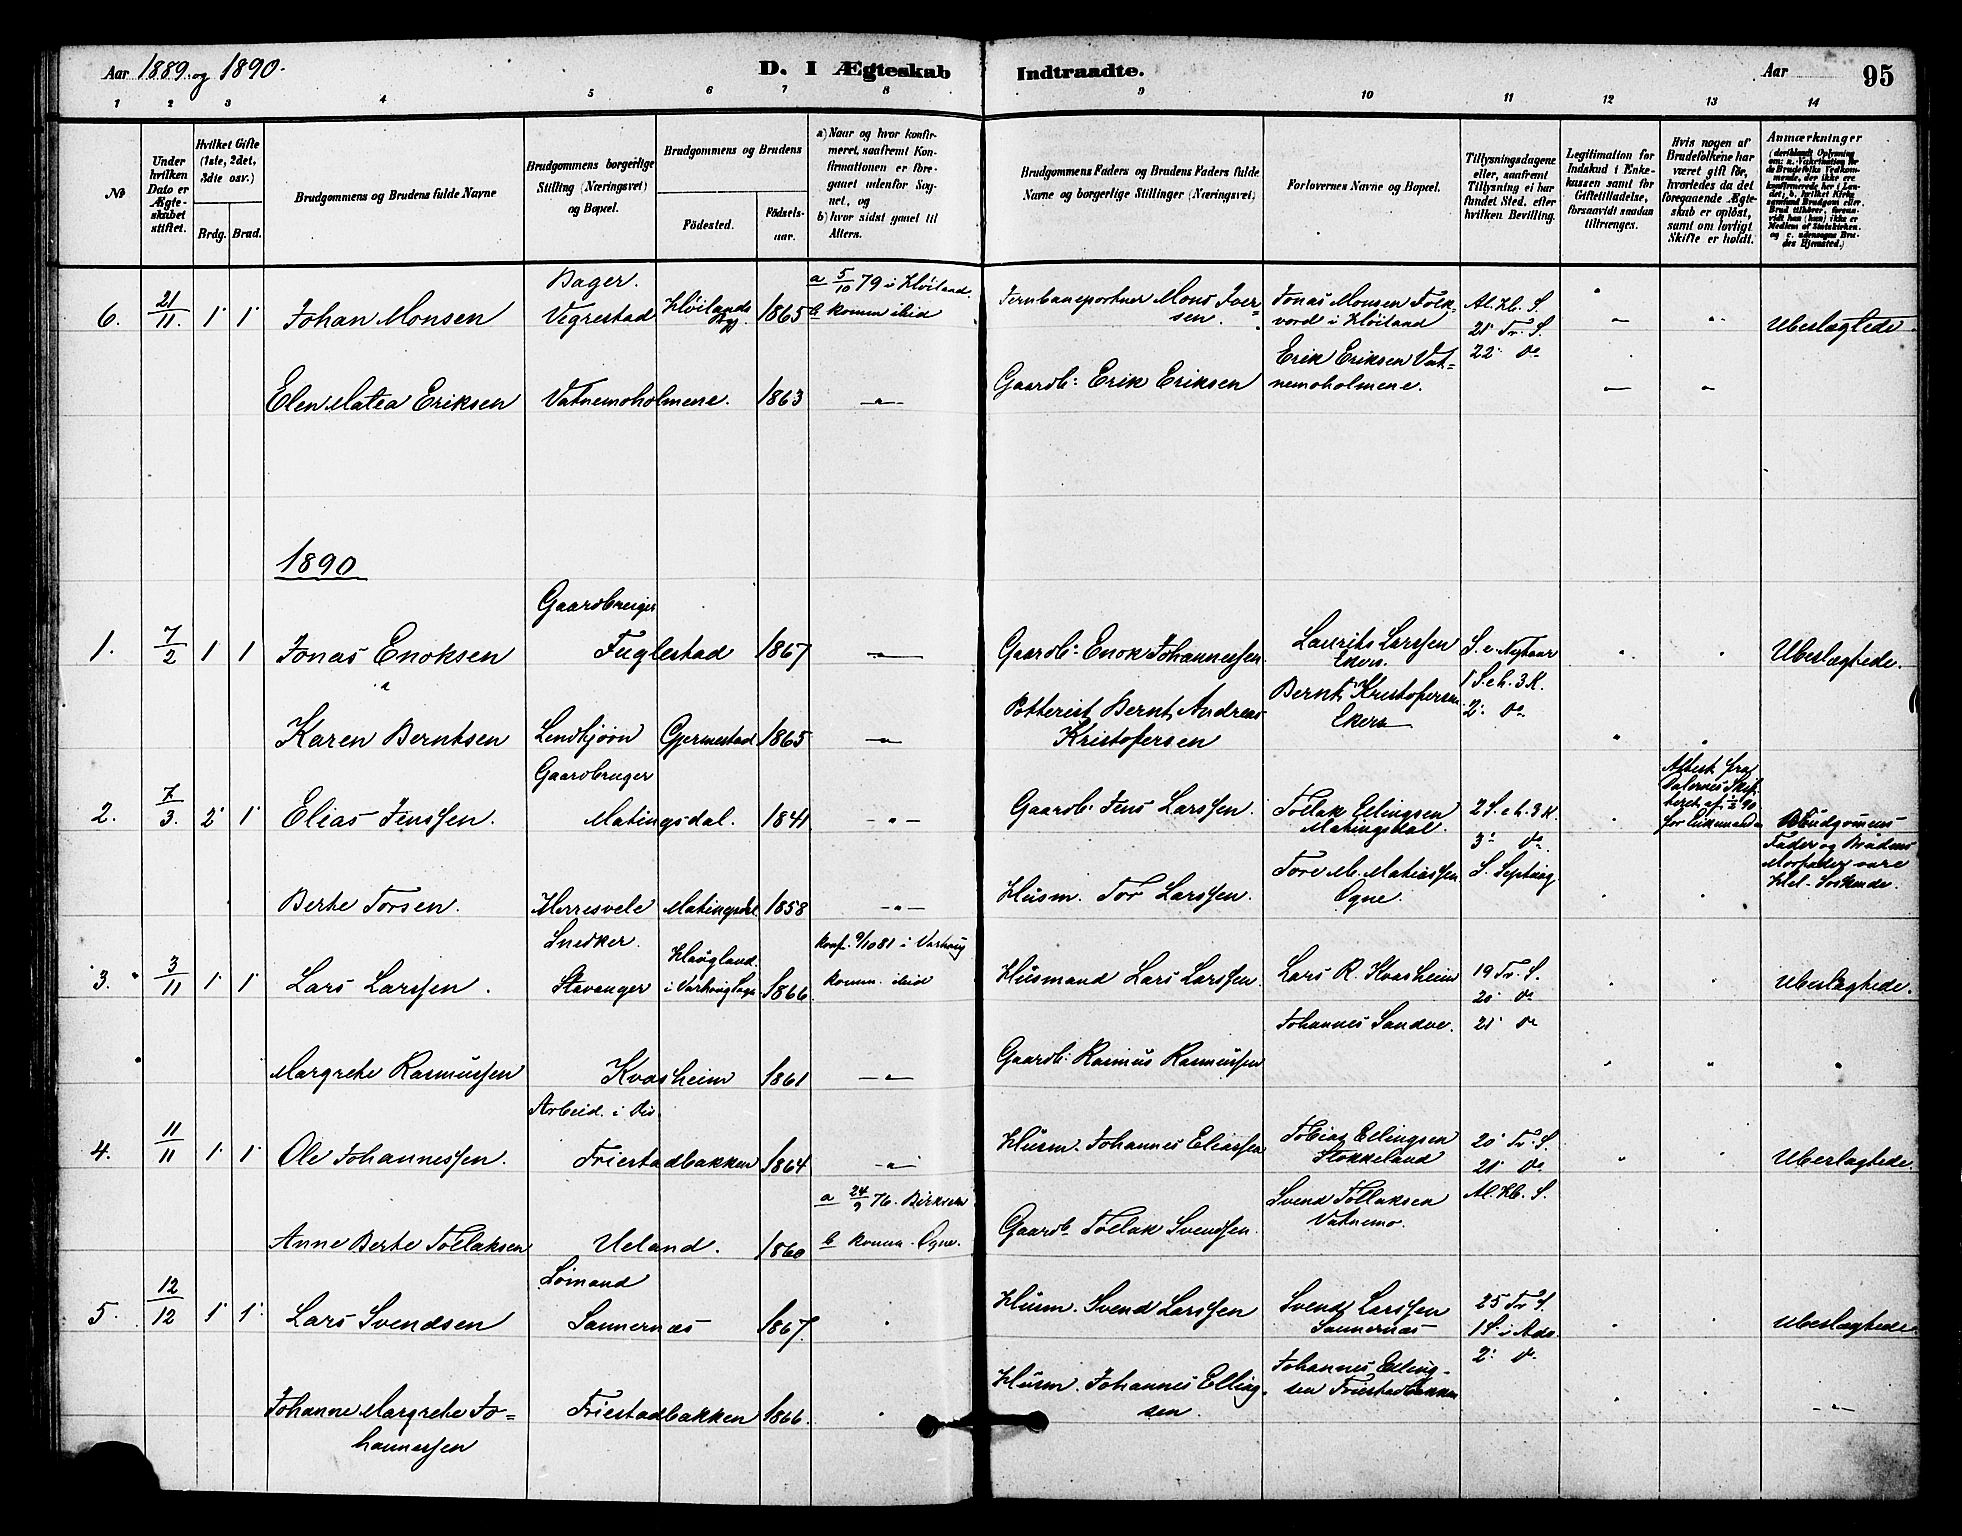 Aar 1889. og 1890.
D. I Ægteskab Indtraadte.
Aar
95
1 2 3 4 5 6 7 8 9 10 11 12 13 14
No
Under hvilken Dato er Ægteskabet stiftet.
Hvilket Gifte (1ste, 2det, 3die osv.)
Brdg. Brud.
Brudgommens og Brudens fulde Navne
Brudgommens borgerlige Stilling (Næringsvei) og Bopæl.
Brudgommens og Brudens
Födested.
Födselsaar.
a) Naar og hvor konfirmeret, saafremt Konfirmationen er foregaaet udenfor Sognet, og
b) hvor sidst gaaet til Alters.
Brudgommens Faders og Brudens Faders fulde Navne og borgerlige Stillinger (Næringsvei)
Forlovernes Navne og Bopæl.
Tillysningsdagene eller, saafremt Tillysning ei har fundet Sted, efter hvilken Bevilling.
Legitimation for Indskud i Enkekassen samt for Giftetilladelse, forsaavidt saadan tiltrænges.
Hvis nogen af Brudefolkene har været gift før, hvorledes da det foregaaende Ægteskab er oplöst, samt om lovligt Skifte er holdt.
Anmærkninger
6. 21/11. 1 1 Johan Monsen
Bager.
Vegrestad
Høilands
1865
a 5/10 79 i Høiland.
b komm ibid
Jernbaneportner Mons Iversen.
Jonas Monsen Folkvord i Høiland
Al. Hl. S.
21 Tr. S.
22 do
Ubeslægtede.
Elen Matea Eriksen
Vatnemoholmene.
1863
Gaardb: Erik Eriksen
Erik Eriksen Vatnemoholmene.
1890
1. 7/2 1 1 Jonas Enoksen
Gaardbruger
Fuglestad
1867
Gaardb: Enok Johannessen
Laurits Larssen
S. e. Nytaar
1 S. e. h. 3 K.
2 do
Ubeslægtede.
Karen Berntsen
Lendhjørn
Gjermestad
1865
Potterist Bernt Andreas Kristofersen
Bernt Kristofersen
2. 7/3. 2 1 Elias Jenssen.
Gaardbruger
Matingsdal.
1841
Gaardb. Jens Larssen.
Tollak Ellingsen Matingsdal.
2 S. e. h. 3 K.
3 do
Attest fra Dalernes Skifteret af
Brudgomens Fader og Brudens Morfader vare Hel-Søskende.
Berte Torsen.
Herresvele
Matingsdal
1858
Husm. Tor Larssen.
Tore M. Matiassen Ogne.
S. Septuag
3. 3/11 1 1 Lars Larssen.
Snedker.
Stavanger
Haugland i Varhoug Sogn
1866
Konf. 9/10 81 i Varhoug
komm. ibid
Husmand Lars Larssen.
Lars R. Kvasheim
Johannes Sandve.
19 Tr. S.
20 do
21 do
Ubeslægtede.
Margrete Rasmussen
Kvasheim
1861
Gaardb: Rasmus Rasmussen
4. 11/11 1 1 Ole Johannessen.
Arbeid. i
Friestadbakken
1864
Husm. Johannes Eliassen
Tobias Ellingsen Stokkeland
20 Tr. S.
21 do
Al. Hl. S.
Ubeslægtede.
Anne Berte Tollaksen
Ueland.
1860
a 24/9 76.
b komm. Ogne.
Gaardb Tollak Svendsen.
Svend Tollaksen Vatnemo.
5. 12/12 1 1 Lars Svendsen
Sømand
Sannernæs
1867.
Husm. Svend Larssen
Svend Larssen Sannernæs
25 Tr. S.
1 S. i Adv.
2 do
Ubeslægtede.
Johanne Margrete Johannessen
Friestadbakken
1866.
Husm. Johannes Ellingsen.
Johannes Ellingsen Friestadbakken